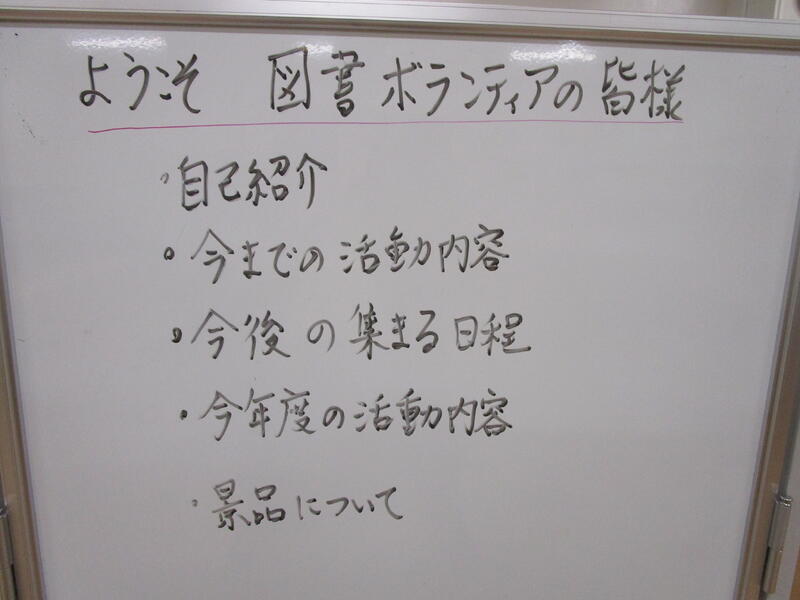 ようこそ 図書ボランティアの皆様
・自己紹介
・今までの活動内容
・今後の集まる日程
・今年度の活動内容
・景品について